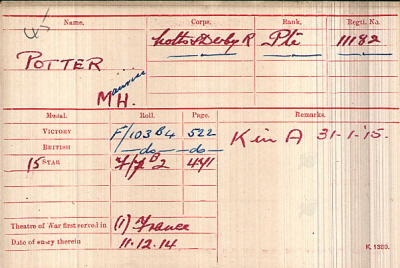 Name. Corps. Rank. Regtl. No.
POTTER Notts & Derby R Pte 11182
Maurice
M H.
Medal. Roll. Page. Remarks.
VICTORY F/103 B4 522 K in A 31-1-'15.
BRITISH -do- -do-
15 STAR 441
Theatre of War first served in (1) France
Date of entry therein 11.12.14
K. 1380.